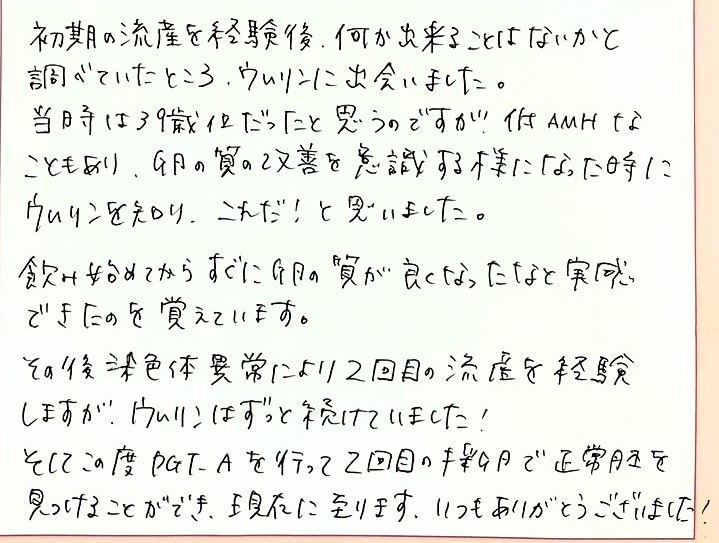 初期の流産を経験後、何か出来ることはないかと
調べていたところ、ウムリンに出会いました。
当時は39歳位だったと思うのですが、低AMHな
こともあり、卵の質の改善を意識する様になった時に
ウムリンを知り、これだ！と思いました。
飲み始めてからすぐに卵の質が良くなったなと実感
できたのを覚えています。
その後染色体異常により2回目の流産を経験
しますが、ウムリンはずっと続けていました！
そしてこの度PGT-Aを行って2回目の採卵で正常胚を
見つけることができ、現在に至ります。いつもありがとうございました！